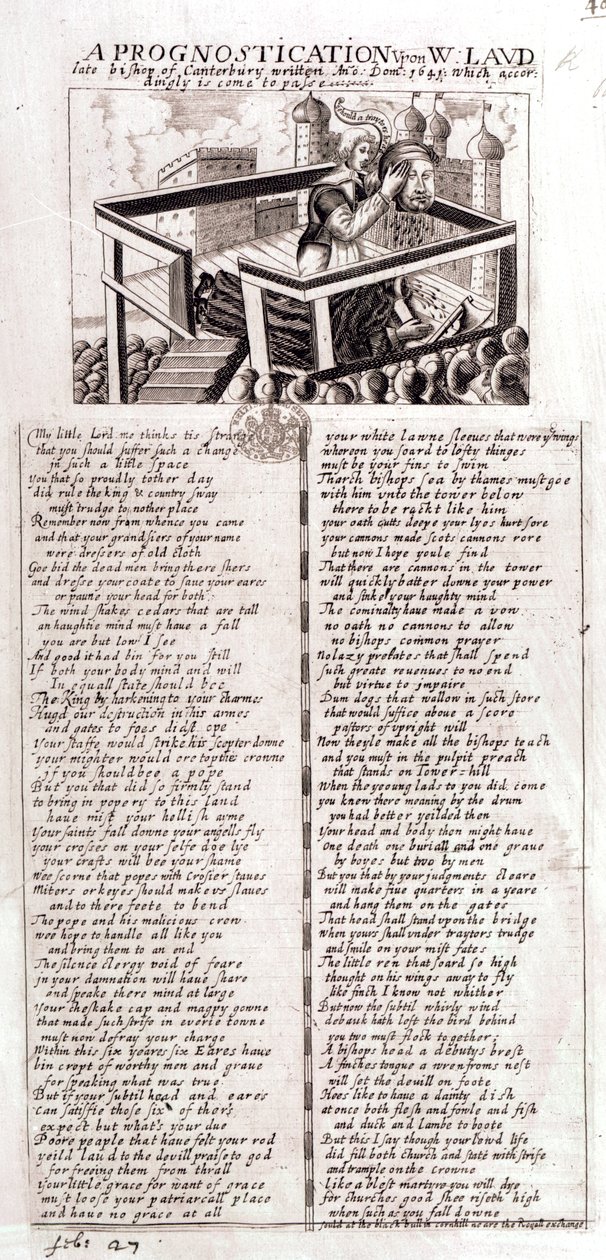 A PROGNOSTICATION Vpon W: LAVD
late bishop of Canterbury written Ano: Dom: 1641: which accor:
dingly is come to passe
My little Lord me thinks tis strange
that you should suffer such a change
in such a little space
You that so proudly tother day
did rule the king & country sway
must trudge to nother place
Remember now from whence you came
and that your grandsiers of your name
were dressers of old cloth
Goe bid the dead men bring there shers
and dresse your coate to saue your eares
or paune your head for both
The wind shakes cedars that are tall
an haughtie mind must haue a fall
you are but low I see
And good it had bin for you still
If both your body mind and will
In equall state should bee
The King by harkening to your charmes
Hugd our destruction in his armes
and gates to foes didst ope
Your staffe would strike his scepter downe
your mighter would ore top the crowne
if you should bee a pope
But you that did so firmly stand
to bring in popery to this land
haue mist your hellish ayme
Your saints fall downe your angells fly
your crosses on your selfe doe lye
your crafts will bee your shame
Wee scorne that popes with Crosier staues
Miters or keyes should make vs slaues
and to there feete to bend
The pope and his malicious crew
wee hope to handle all like you
and bring them to an end
The silence clergy void of feare
in your damnation will haue share
and speake there mind at large
Your cheskake cap and magpy gowne
that made such strife in euerie towne
must now defray your charge
Within this six yeares six Eares haue
bin cropt of worthy men and graue
for speaking what was true
But if your subtil head and eares
can satisfie those six of thers
expect but what's your due
Poore peaple that haue felt your rod
yeild laud to the deuill praise to god
for freeing them from thrall
your little grace for want of grace
must loose your patriarcall place
and haue no grace at all
your white lawne sleeues that were yr wings
whereon you soard to lofty thinges
must be your fins to swim
Tharch bishops sea by thames must goe
with him vnto the tower below
there to be rackt like him
your oath cutts deepe your lyes hurt sore
your cannons made Scots cannons rore
but now I hope youle find
That there are cannons in the tower
will quickly batter downe your power
and sinke your haughty mind
The cominalty haue made a vow
no oath no cannons to allow
no bishops common prayer
No lazy prelates that shall spend
such greate reuenues to no end
but virtue to impaire
Dum dogs that wallow in such store
that would suffice aboue a score
pastors of vpright will
Now theyle make all the bishops teach
and you must in the pulpit preach
that stands on Tower-hill
When the yeoung lads to you did come
you knew there meaning by the drum
you had better yeilded then
Your head and body then might haue
One death one buriall and one graue
by boyes but two by men
But you that by your judgments cleare
will make fiue quarters in a yeare
and hang them on the gates
That head shall stand vpon the bridge
When yours shall vnder traytors trudge
and smile on your mist fates
The little ren that soard so high
thought on his wings away to fly
like finch I know not whither
But now the subtil whirly wind
debauk hath left the bird behind
you two must flock together
A bishops head a debutys brest
A finches tongue a wren from s nest
will set the deuill on foote
Hees like to haue a dainty dish
at once both flesh and fowle and fish
and duck and lambe to boote
But this I say though your lewd life
did fill both church and state with strife
and trample on the crowne
like a blest martyre you will dye
for churches good shee riseth high
when such as you fall downe
sould at the black bull in cornhill neare the Royall exchange
feb: 27